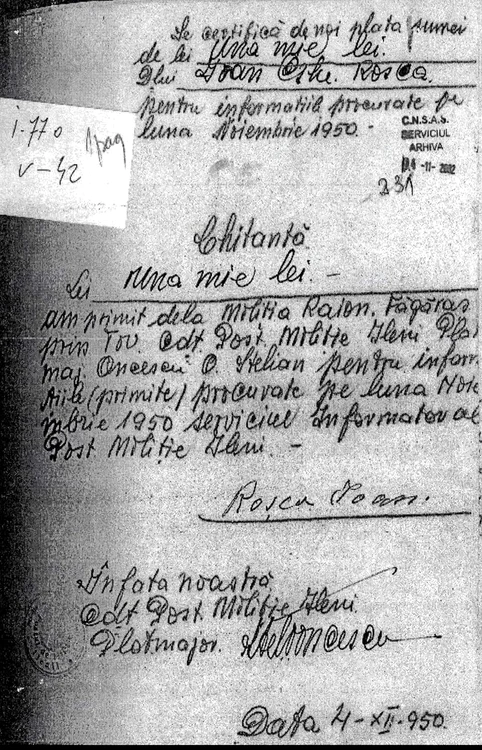 Se certifică de noi plata sumei
de lei Una mie lei.
Dlui Ioan Ghe. Rosca.
pentru informatiile procurate pe
luna Noiembrie 1950.-
C.N.S.A.S.
SERVICIUL
ARHIVA
04 -11- 2002
231
i-770
v-42
1pag
Chitantă
Lei Una mie lei.-
am primit dela Militia Raion. Făgăras
prin Tov Cdt Post. Militie Ileni Plat
maj. Oncescu O. Stelian pentru infor-
(primite) procurate pe luna Noie
mbrie 1950 serviciul Informator al
Post Militie Ileni.-
Roșca Ioan.
În fata noastră
Cdt Post. Militie Ileni
Platmajor.
Data 4-XII-950.